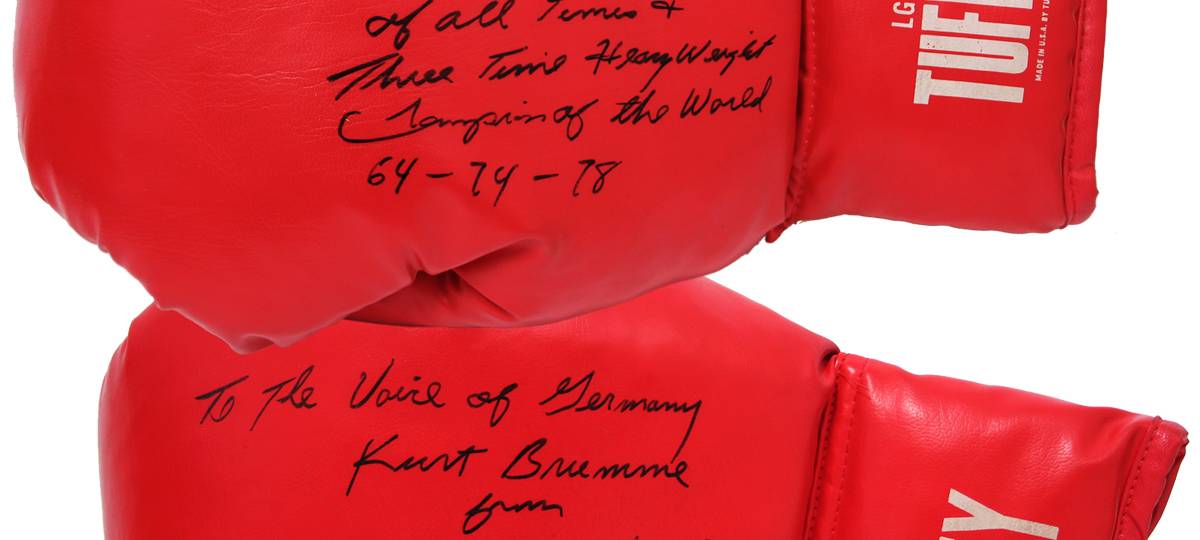 of all Times &
Three Time HeavyWeight
Champion of the World
64 - 74 - 78
LG
TUF
MADE IN U.S.A. BY TU
To The Voice of Germany
Kurt Brumme
from
Y